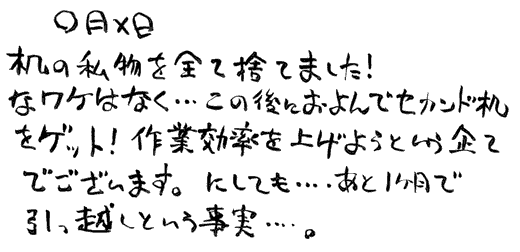 ○月×日
机の私物を全て捨てました!
なワケはなく…この後におよんでセカンド机
をゲット! 作業効率を上げようという企て
でございます。にしても‥‥あと1ヶ月で
引っ越しという事実‥‥。